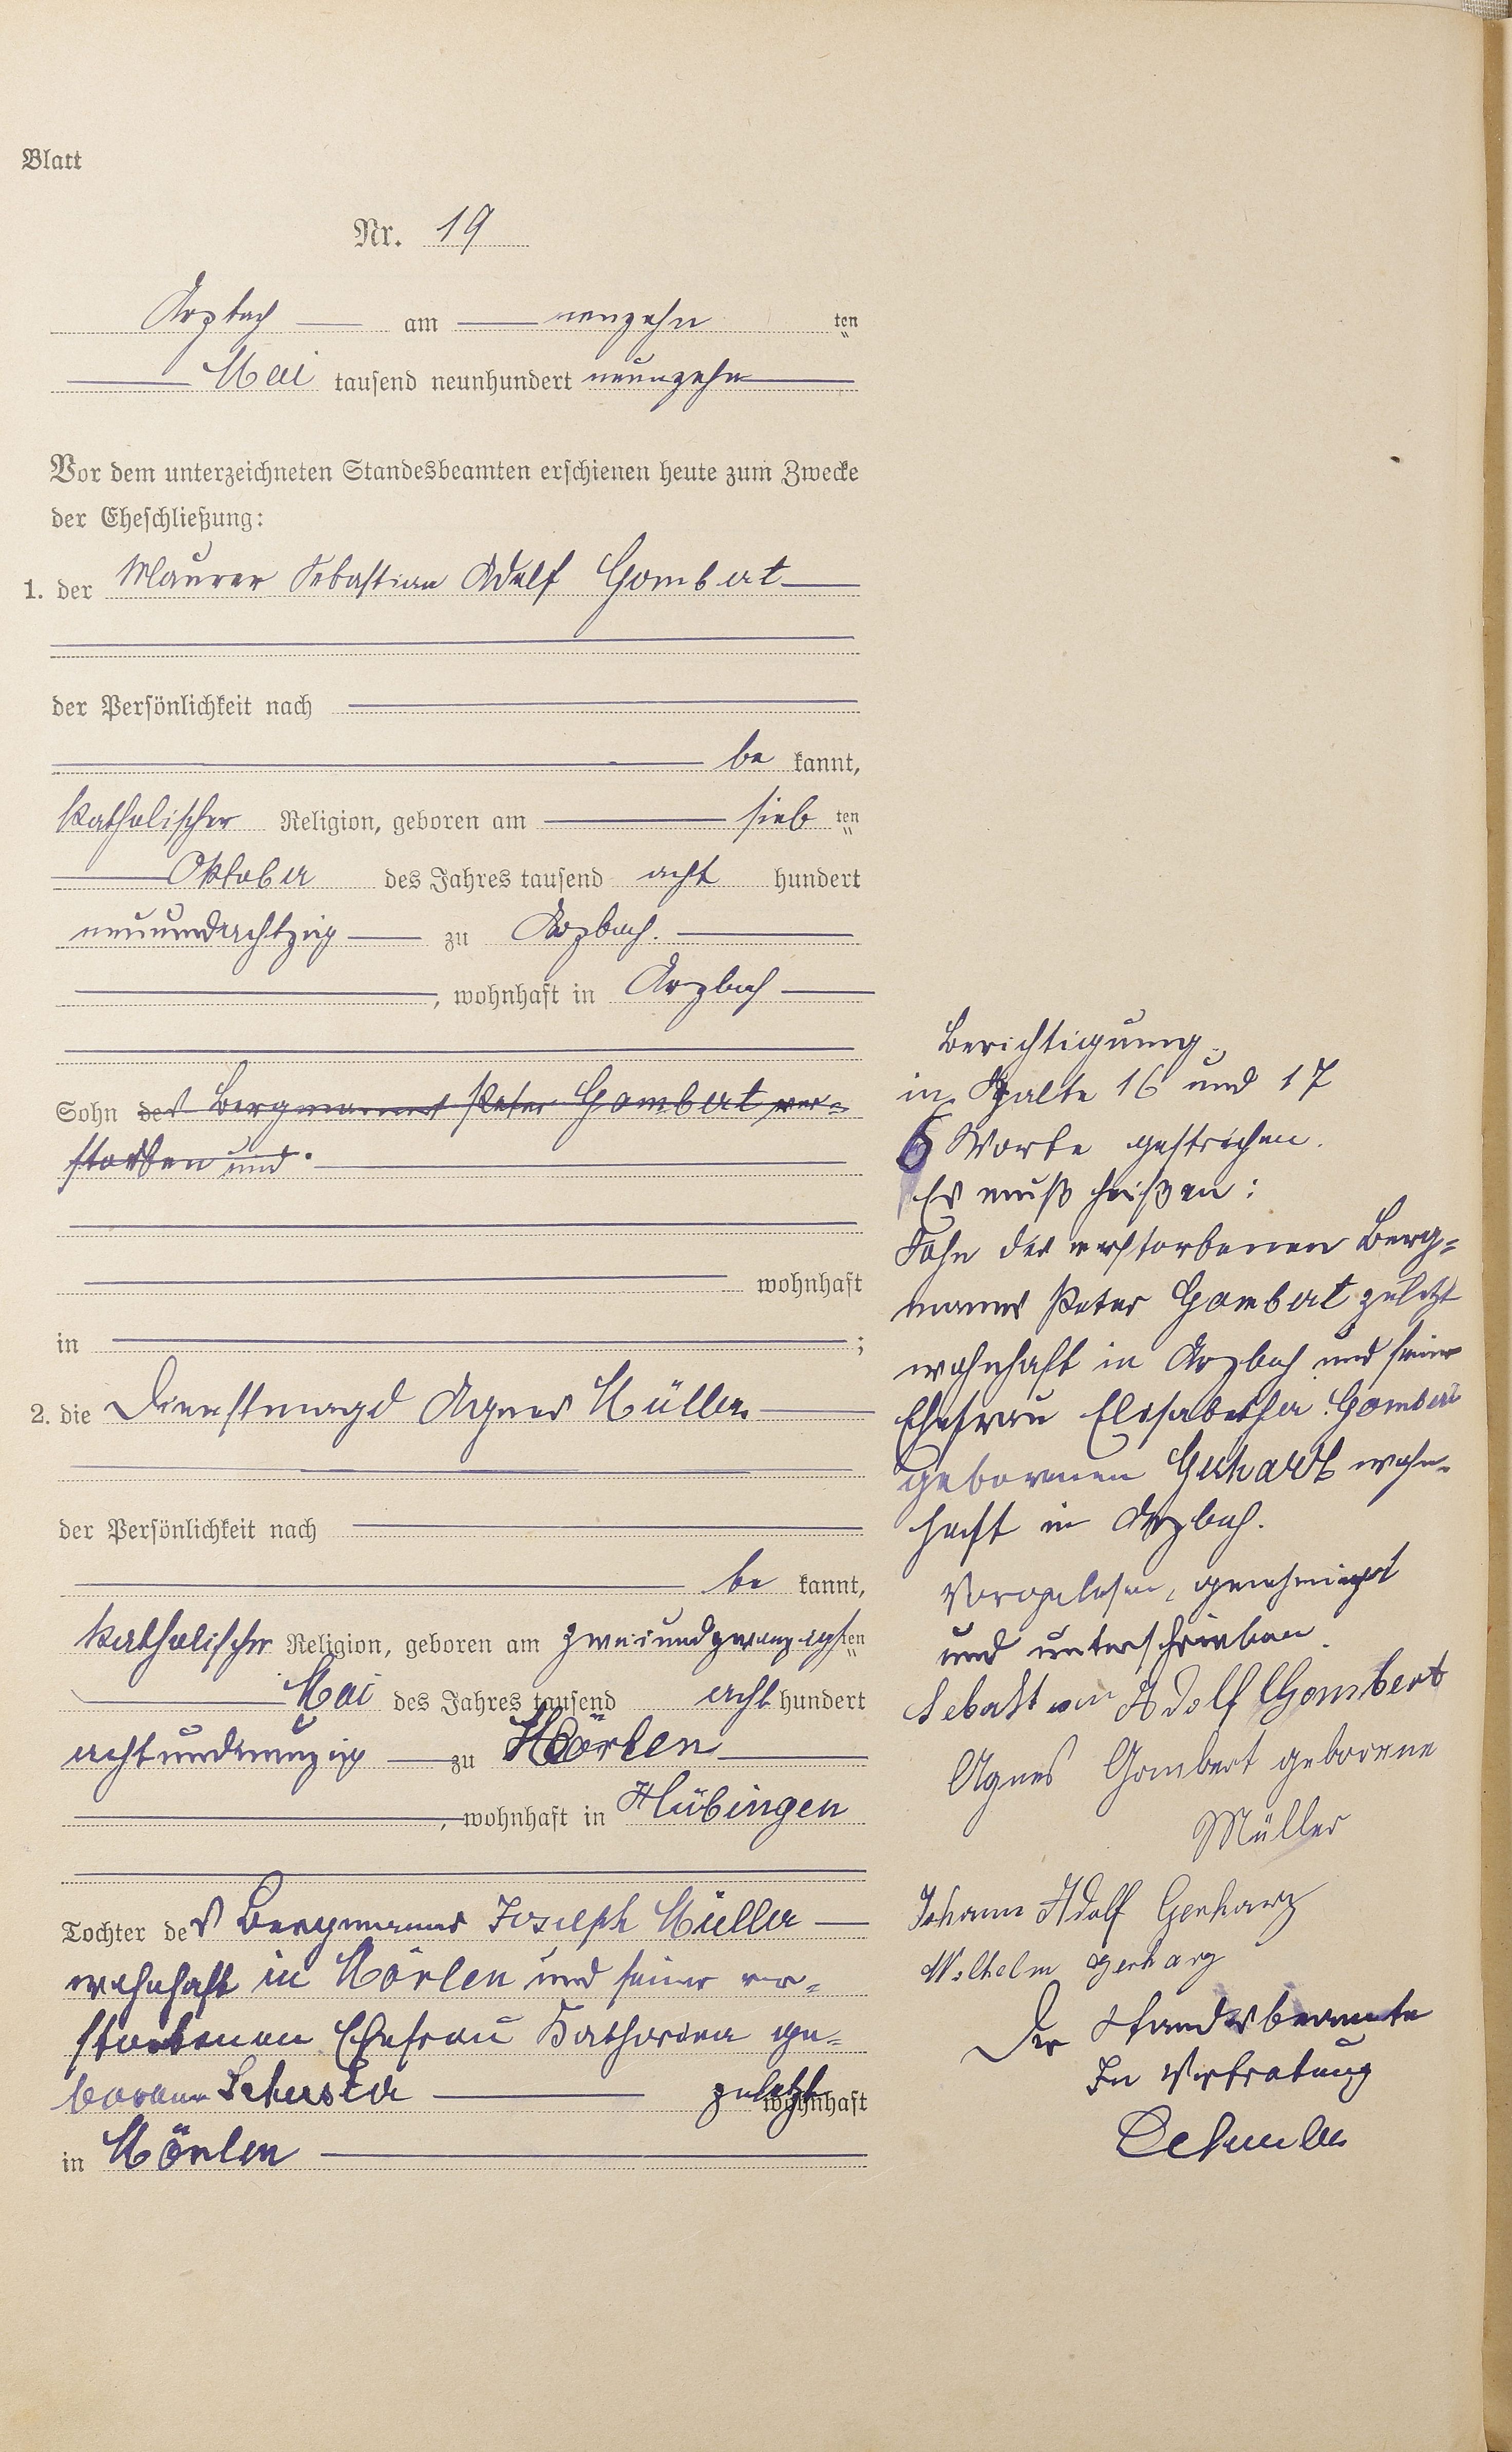 Blatt
Nr. 19
Arzbach am neunzehn ten
Mai tausend neunhundert neunzehn
Vor dem unterzeichneten Standesbeamten erschienen heute zum Zwecke
der Eheschließung:
1. der Maurer Sebastian Adolf Gombert
der Persönlichkeit nach
be kannt,
katholischer Religion, geboren am sieb ten
Oktober des Jahres tausend acht hundert
neunundachtzig zu Arzbach.
, wohnhaft in Arzbach
Sohn des Bergmannes Peter Gombert ver=
storben und
wohnhaft
in ;
2. die Dienstmagd Agnes Müller
der Persönlichkeit nach
be kannt,
katholischer Religion, geboren am zweiundzwanzigsten
Mai des Jahres tausend acht hundert
achtundneunzig zu Mörlen
, wohnhaft in Hübingen
Tochter des Bergmannes Joseph Müller
wohnhaft in Mörlen und seiner ver=
storbenen Ehefrau Katharina ge=
borene Schuster zuletzt wohnhaft
in Mörlen
Berichtigung.
in Spalte 16 und 17
6 Worte gestrichen.
Es muß heißen:
Sohn des verstorbenen Berg=
manns Peter Gombert zuletzt
wohnhaft in Arzbach und seiner
Ehefrau Elisabetha Gombert
geborenen Gerhartz wohn=
haft in Arzbach.
Vorgelesen, genehmigt
und unterschrieben.
Sebastian Adolf Gombert
Agnes Gombert geborene
Müller
Johann Adolf Gerharz
Wilhelm Gerharz
Der Standesbeamte
In Vertretung